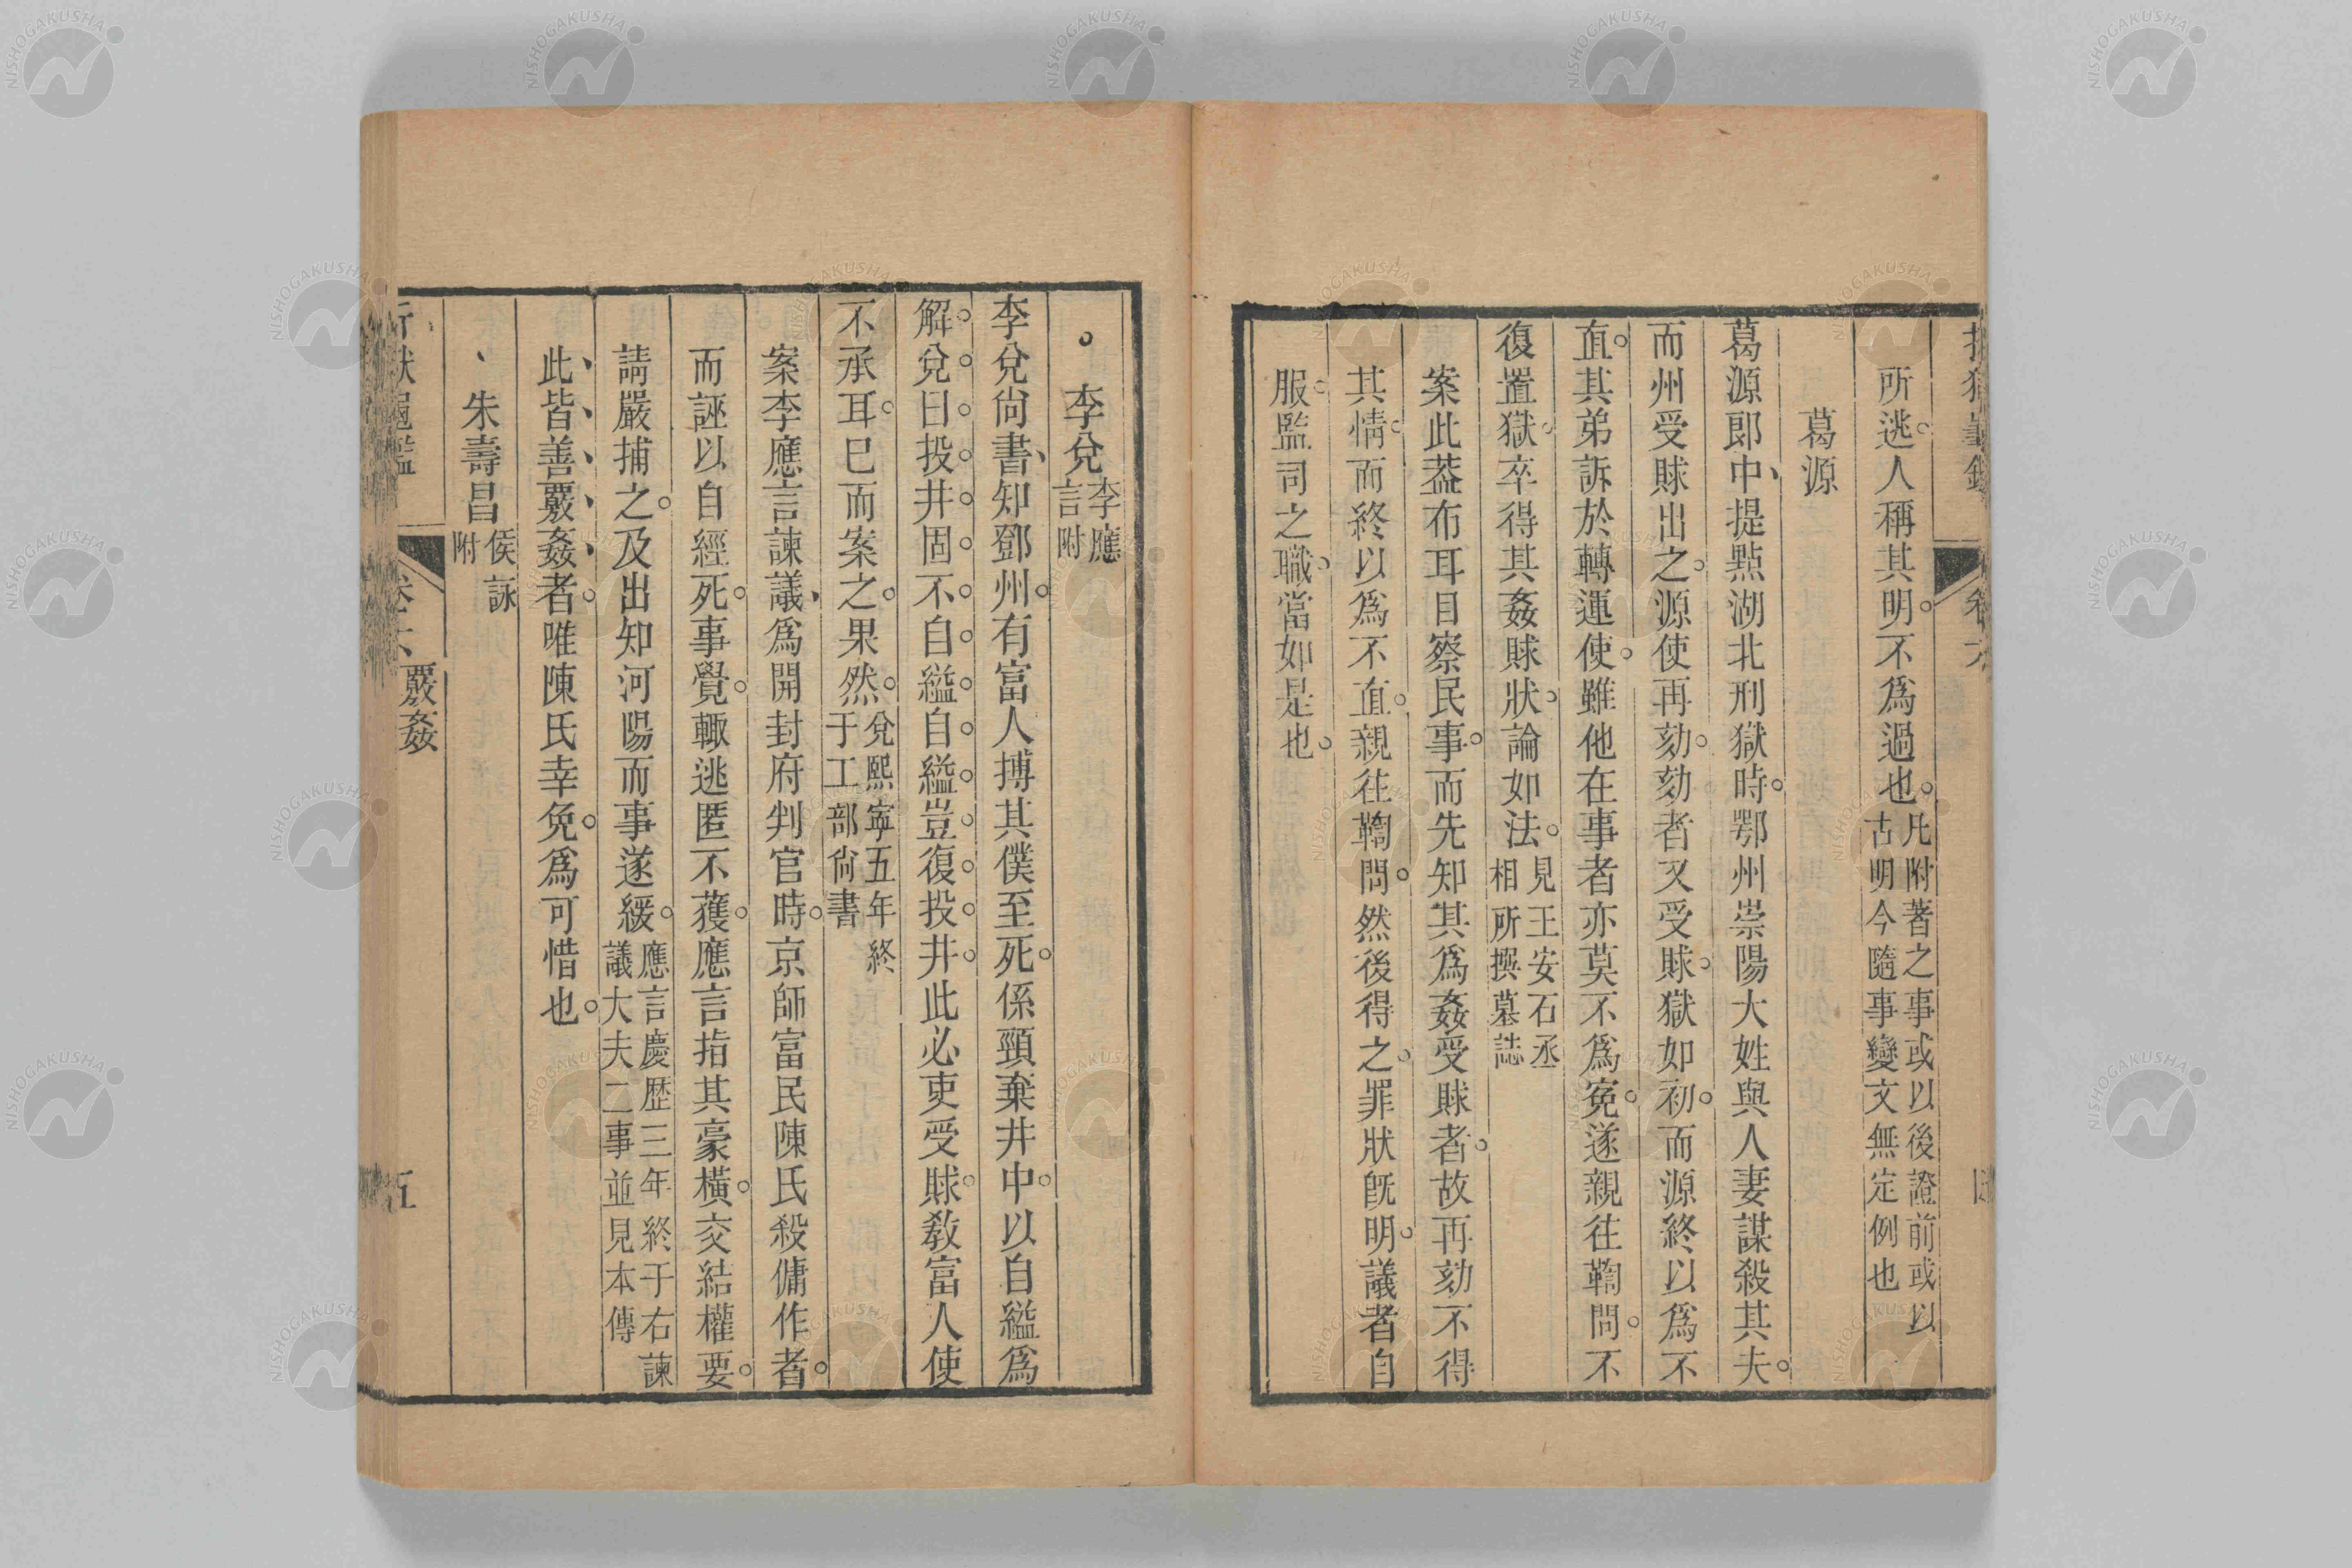 所逃人稱其明不爲過也凡附著之事或以後證前或以
古明今隨事變文無定例也
葛源
葛源郎中提點湖北刑獄時鄂州崇陽大姓與人妻謀殺其夫
而州受賕出之源使再劾劾者又受賕獄如初而源終以爲不
直其弟訴於轉運使雖他在事者亦莫不爲寃遂親往鞫問不
復置獄卒得其姦賕狀論如法見王安石丞
相所撰墓誌
案此葢布耳目察民事而先知其爲姦受賕者故再劾不得
其情而終以爲不直親往鞫問然後得之罪狀旣明議者自
服監司之職當如是也
李兌李應
言附
李兌尙書知鄧州有富人搏其僕至死係頸棄井中以自縊爲
解兌曰投井固不自縊自縊豈復投井此必吏受賕敎富人使
不承耳已而案之果然兌熙寧五年終
于工部尙書
案李應言諫議爲開封府判官時京師富民陳氏殺傭作者
而誣以自經死事覺輙逃匿不獲應言指其豪橫交結權要
請嚴捕之及出知河陽而事遂緩應言慶歴三年終于右諫
議大夫二事並見本傳
此皆善覈姦者唯陳氏幸免爲可惜也
朱壽昌侯詠
附
覈姦
五